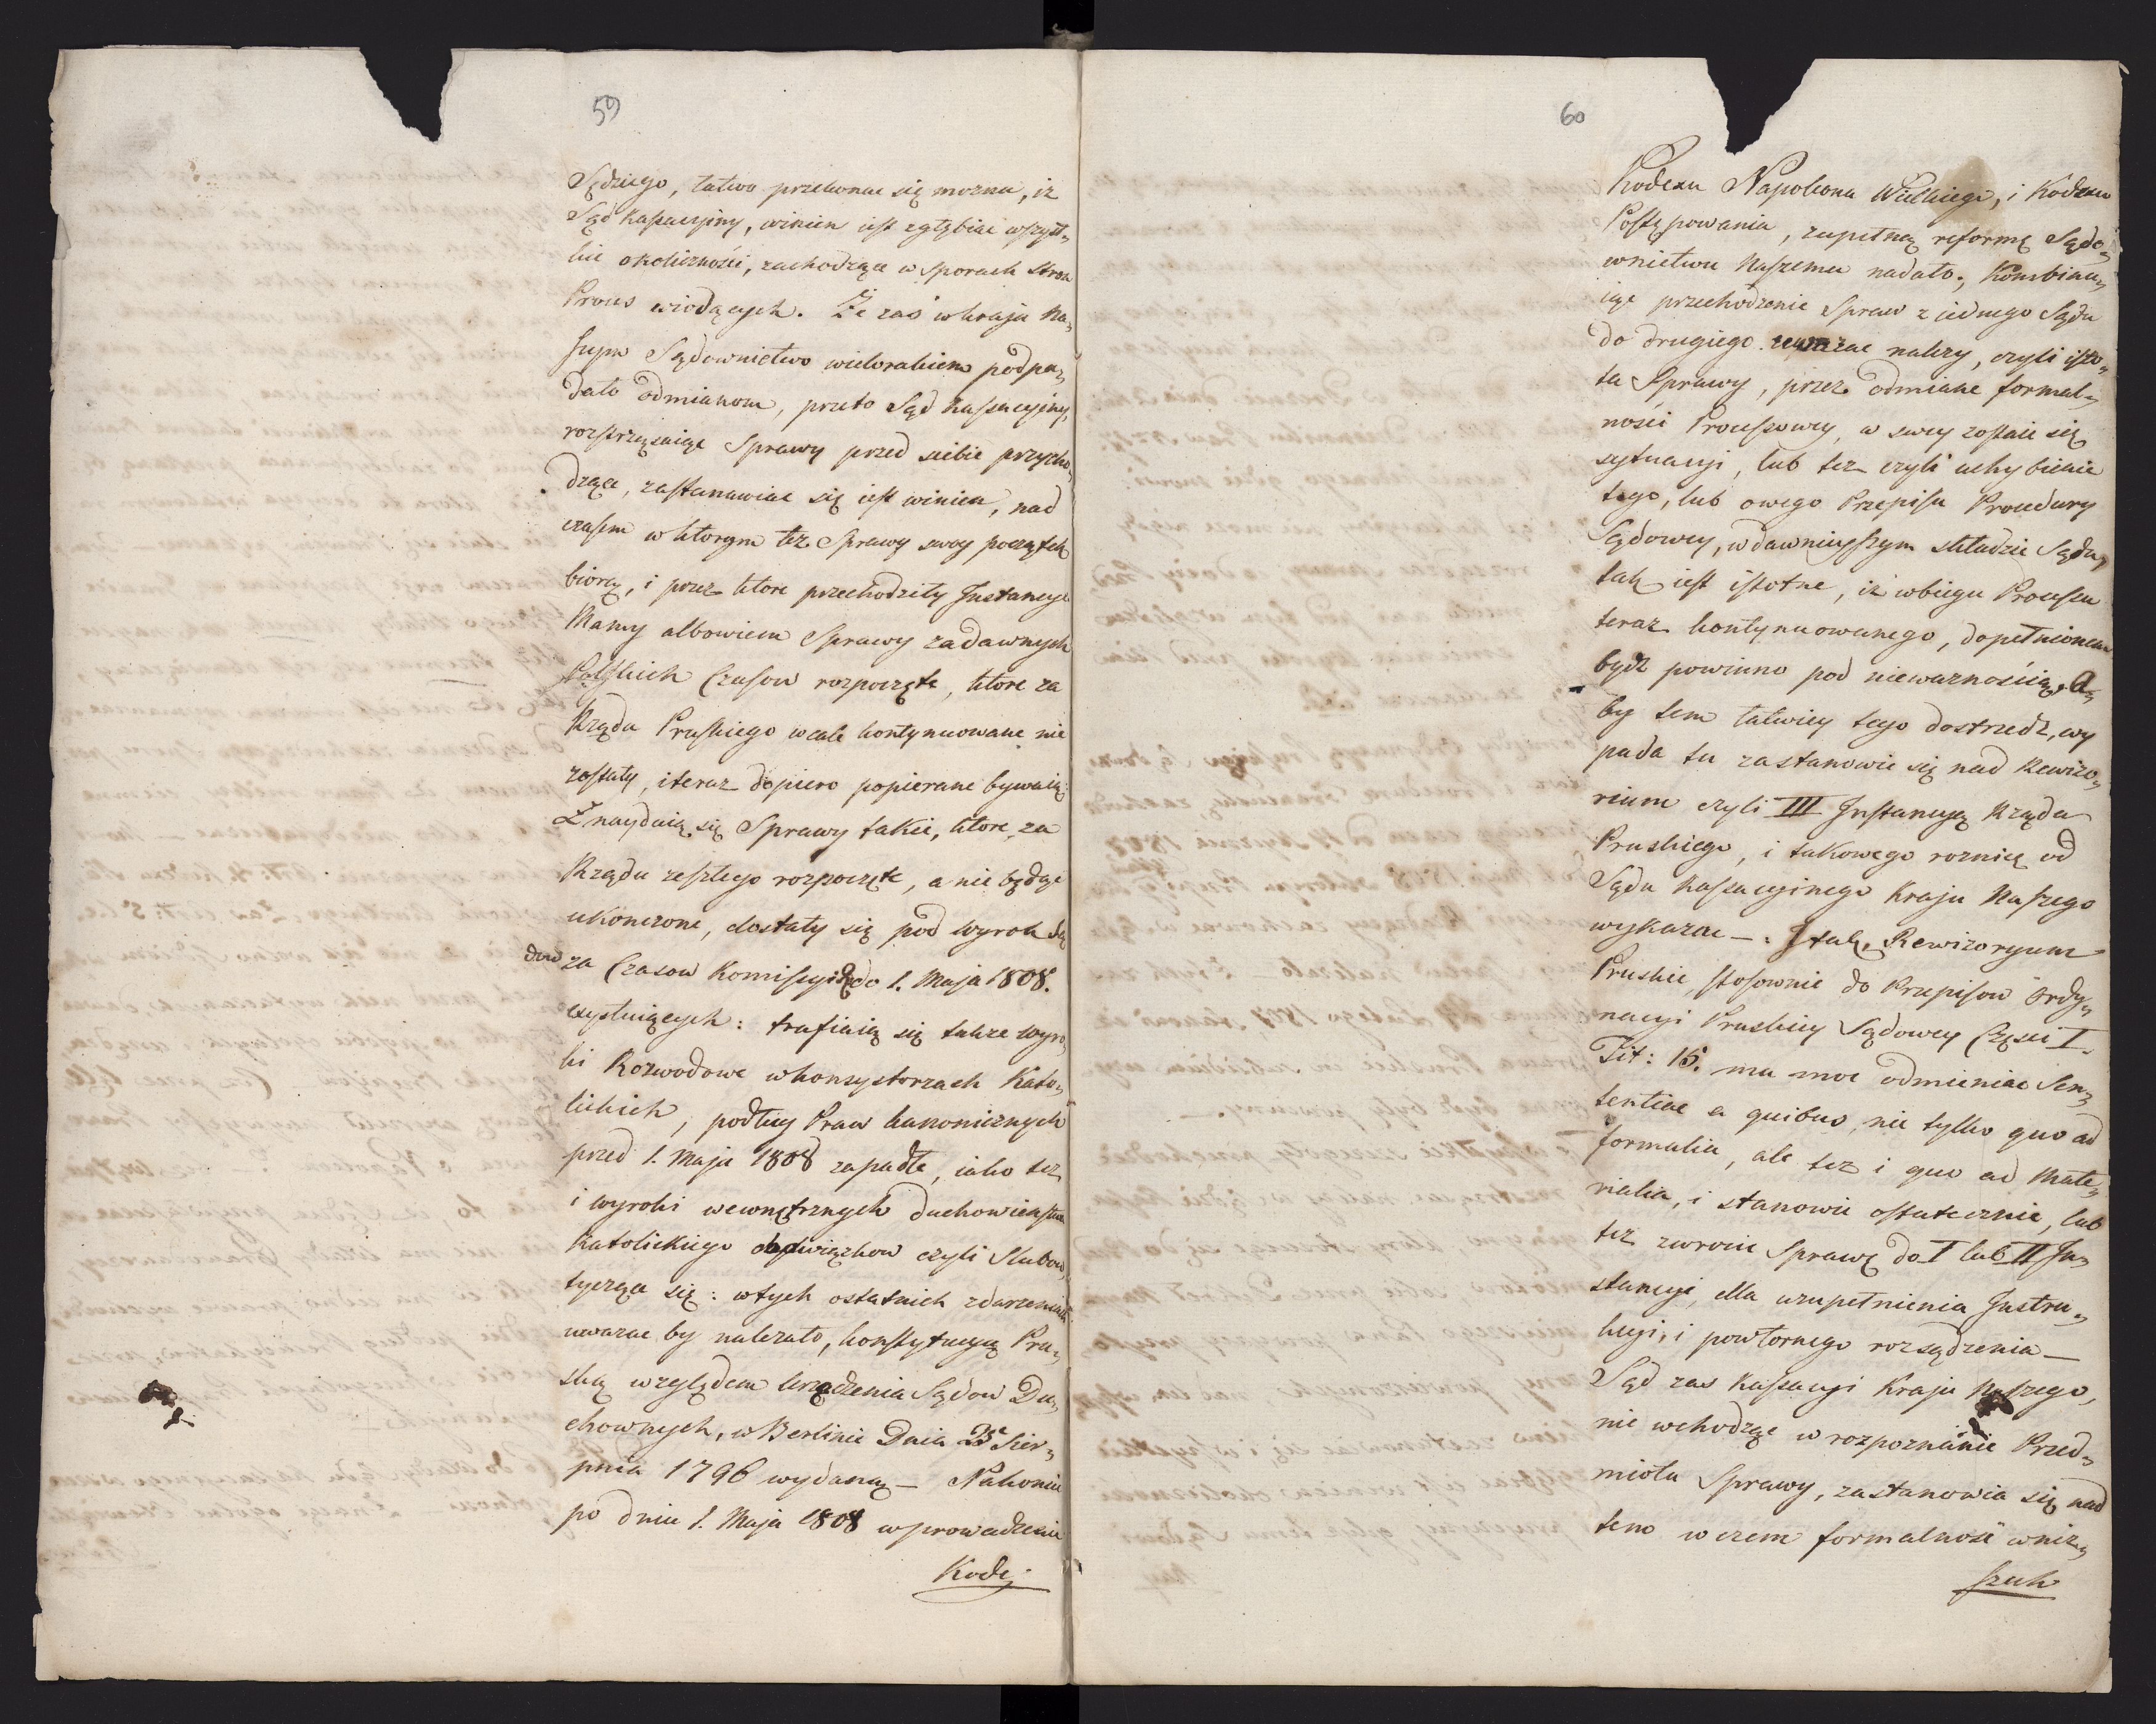 59
Sędziego, łatwo przekonac się można, iż
Sąd Kassacyiny, winien iest zgłębiac wszyst„
kie okoliczności, zachodzące w sporach stron
Proces wiodących. Że zaś w kraju Na„
szym Sądownictwo wielorakiem podpa„
dało odmianom, przeto Sąd Kassacyiny,
rozstrząsaiąc Sprawy przed siebie przycho„
dzące, zastanawiac się iest winien, nad
czasem w ktorym też Sprawy swoy początek
biorą, i przez ktore przechodziły Instancye
Mamy albowiem Sprawy zadawnych
Polskich Czasow rozpoczęte, ktore za
Rządu Pruskiego wcale kontynuowane nie
zostały, i teraz dopiero popierane bywaią:
Znayduią się Sprawy takie, ktore, za
Rządu zeszłego rozpoczęte, a nie będąc
ukonczone, dostały się pod wyrok Są
dow za Czasow Komissyi do 1. Maja 1808.
exystuiących: trafiaią się takze wyro„
ki Rozwodowe w konsystorzach Kato„
lickich, podług Praw kanonicznych
przed 1. Maja 1808 zapadłe, iako też
i wyroki wewnętrznych duchowienstwa
Katolickiego obowiązkow czyli Slubow
tyczące się: w tych ostatnich zdarzeniach
uwazac by nalezało, konstytucyą Pru„
ską względem urządzenia Sądow Du„
chownych, w Berlinie Dnia 25e Sier„
pnia 1796 wydaną — Nakoniec
po dniu 1. Maja 1808 wprowadzenie
Kode„
60
Kodexu Napoleona Wielkiego, i Kodexu
Postępowania, zupełną reformę Sądo„
wnictwu Naszemu nadało; Kombinu„
iąc przechodzenie Spraw z iednego Sądu
do drugiego uwazac nalezy, czyli isto„
ta Sprawy, przez odmiane formal„
ności Processowey, w swey zostaie się
sytuacyi, lub też czyli uchybienie
tego, lub owego Przepisu Procedury
Sądowey, w dawnieyszym składzie Sądu,
tak iest istotne, iż w biegu Processu
teraz kontynuowanego, dopełnionem
bydź powinno pod niewaznością. A„
by tem łatwiey tego dostrzedz, wy
pada tu zastanowic się nad Rewizo„
rium czyli III Instancyą Rządu
Pruskiego, i takowego roznicę od
Sądu Kassacyinego Kraju Naszego
wykazac —. I tak, Rewizoryum
Pruskie, stosownie do Przepisow Ordy„
nacyi Pruskiey Sądowey Części I.
Tit: 16. ma moc odmieniac Sen„
tentiae a quibus, nie tylko quo ad
formalia, ale też i quo ad Mate„
rialia, i stanowic ostatecznie, lub
też zwrocic Sprawę do I lub II In„
stancyi, dla uzupełnienia Instru„
kcyi, i powtornego rozsądzenia —
Sąd zas Kassacyi Kraju Naszego,
nie wchodząc w rozpoznanie Przed„
miotu Sprawy, zastanowia się nad
tem w czem formalność w niz„
szych